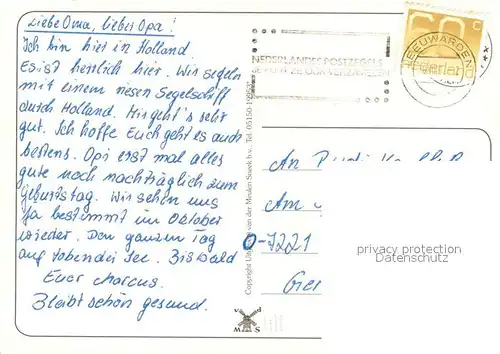 Liebe Oma, lieber Opa!
Ich bin hier in Holland
Es ist herrlich hier. Wir segeln
mit einem riesen Segelschiff
durch Holland. Mir geht's sehr
gut. Ich hoffe Euch geht es auch
bestens. Opi erst mal alles
gute noch nachträglich zum
Geburtstag. Wir sehen uns
ja bestimmt im Oktober
wieder. Den ganzen Tag
auf tobender See. Bis bald
Euer Marcus.
Bleibt schön gesund.
NEDERLANDSE POSTZEGELS
60 c
nederland
LEEUWARDEN
Copyright van der Meulen-Sneek b.v. Tel. 05150-
An
Am
D-7221
privacy protection
Datenschutz